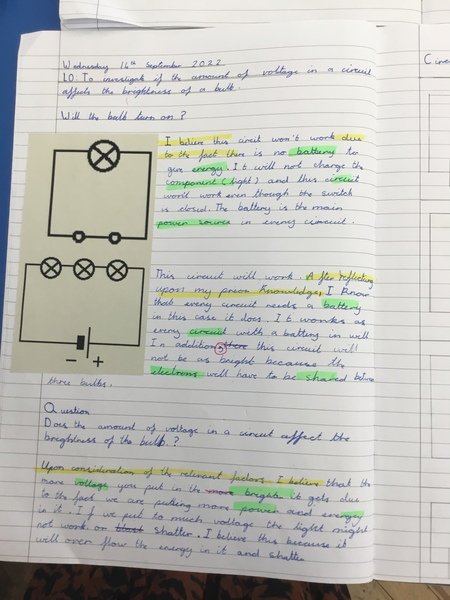 Wednesday 14th September 2022
LO: To investigate if the amount of voltage in a circuit
affects the brightness of a bulb.
Will the bulb turn on?
I believe this circuit won't work due
to the fact there is no battery to
give energy. It will not charge the
component (light) and thus circuit
won't work even though the switch
is closed. The battery is the main
power source in every circuit.
This circuit will work. After reflecting
upon my prior knowledge, I know
that every circuit needs a battery
in this case it does. It works as
every circuit with a battery in will
In addition, there this circuit will
not be as bright because the
electrons will have to be shared
three bulbs.
- +
Question
Does the amount of voltage in a circuit affect the
brightness of the bulb?
Upon consideration of the relevant factors, I believe that the
more voltage you put in the more brighter it gets due
to the fact we are putting more power and energy
in it. If we put to much voltage the light might
not work or shatter. I believe this because it
will over flow the energy in it and shatter
Circ